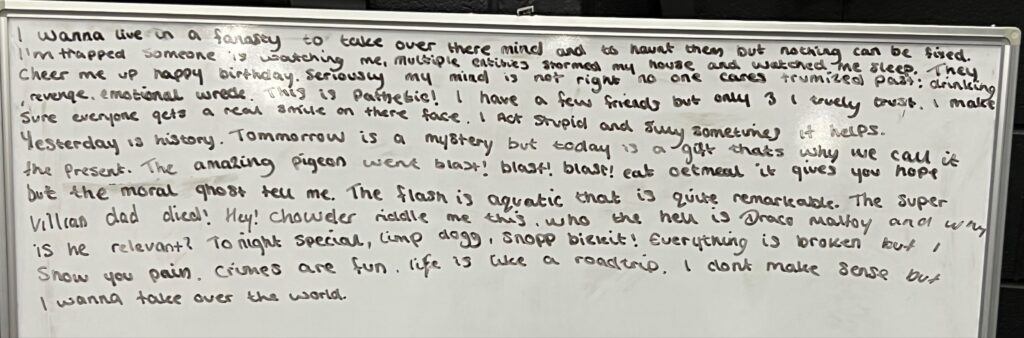 I wanna live in a fanasty to take over there mind and to haunt them but nothing can be fixed.
I'm trapped someone is watching me, multiple entities stormed my house and watched me sleep. They
Cheer me up happy birthday. Seriously my mind is not right no one cares trumized past: drinking
, revenge. emotional wreck. This is Pathetic! I have a few friends but only 3 I truely trust. I make
Sure everyone gets a real smile on there face. I Act Stupid and silly sometimes it helps.
Yesterday is history. Tommorrow is a mystery but today is a gift thats why we call it
the present. The amazing pigeon went blast! blast! blast! eat oetmeal it gives you hope
but the moral ghost tell me. The flash is aquatic that is quite remarkable. The super
villian dad died! Hey! Chowder riddle me this, who the hell is Draco malfoy and why
is he relevant? Tonight special, Limp dogg, Snopp biskit! Everything is broken but I
Show you pain. Crimes are fun. life is like a roadtrip. I dont make sense but
I wanna take over the world.